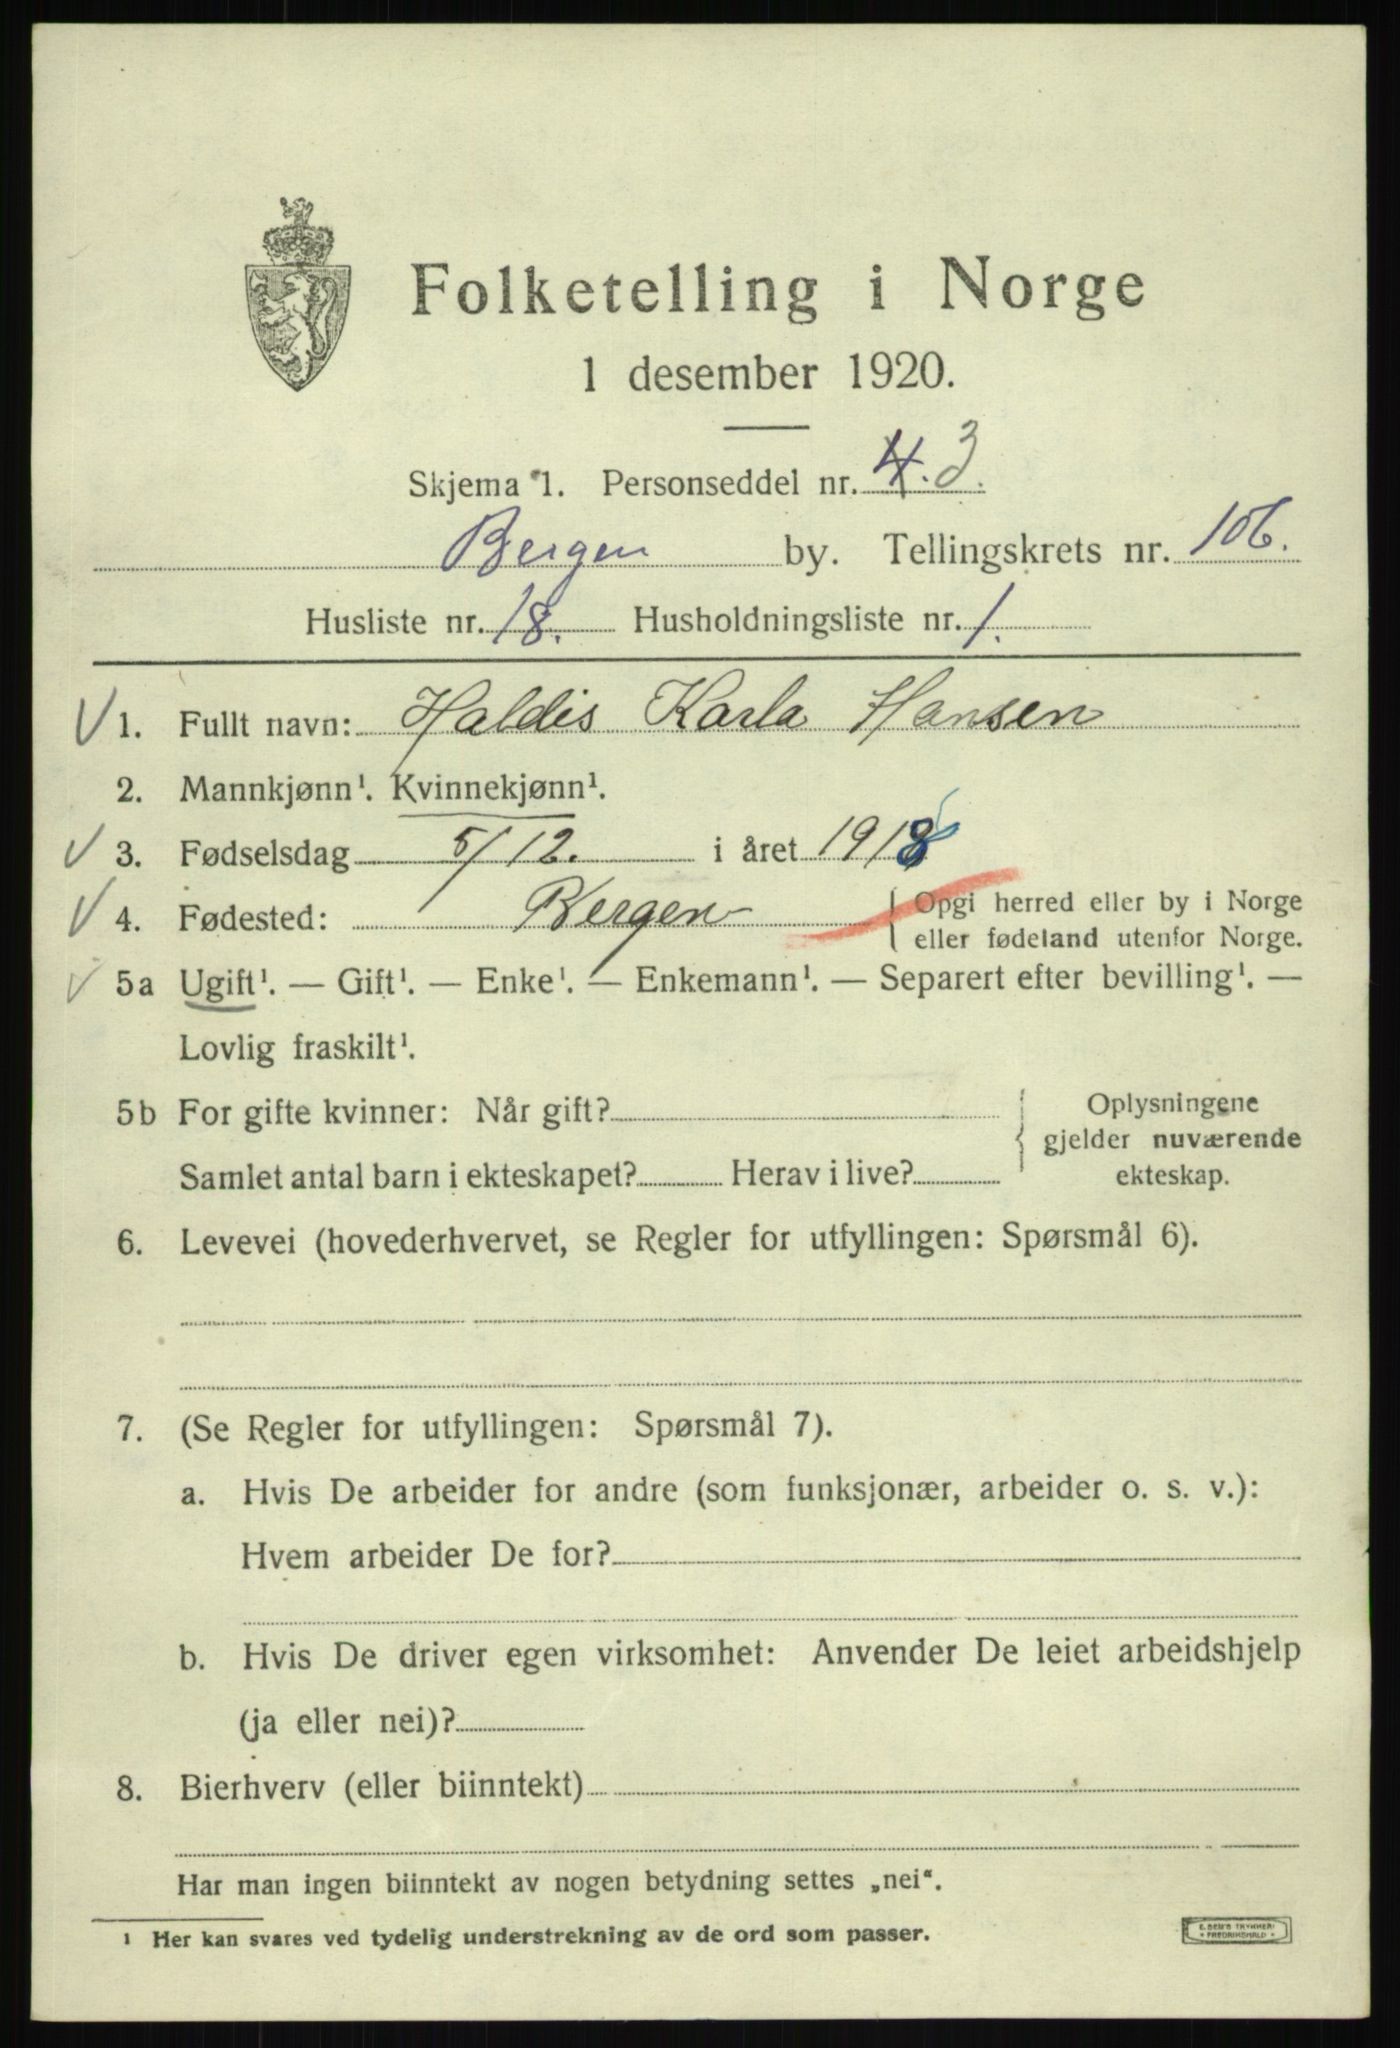 Folketelling i Norge
1 desember 1920.
Skjema 1. Personseddel nr. 4. 3.
Bergen by. Tellingskrets nr. 106.
Husliste nr. 18. Husholdningsliste nr. 1.
1. Fullt navn: Haldis Karla Hansen
2. Mannkjønn¹. Kvinnekjønn¹.
3. Fødselsdag 5/12. i året 1918
4. Fødested: Bergen { Opgi herred eller by i Norge
eller fødeland utenfor Norge.
5a Ugift¹. — Gift¹. — Enke¹. — Enkemann¹. — Separert efter bevilling¹. —
Lovlig fraskilt¹.
5b For gifte kvinner: Når gift? { Oplysningene
gjelder nuværende
Samlet antal barn i ekteskapet? Herav i live? ekteskap.
6. Levevei (hovederhvervet, se Regler for utfyllingen: Spørsmål 6).
7. (Se Regler for utfyllingen: Spørsmål 7).
a. Hvis De arbeider for andre (som funksjonær, arbeider o. s. v.):
Hvem arbeider De for?
b. Hvis De driver egen virksomhet: Anvender De leiet arbeidshjelp
(ja eller nei)?
8. Bierhverv (eller biinntekt)
Har man ingen biinntekt av nogen betydning settes „nei“.
¹ Her kan svares ved tydelig understrekning av de ord som passer.
E. SEM'S TRYKKERI
* FREDRIKSHALD *